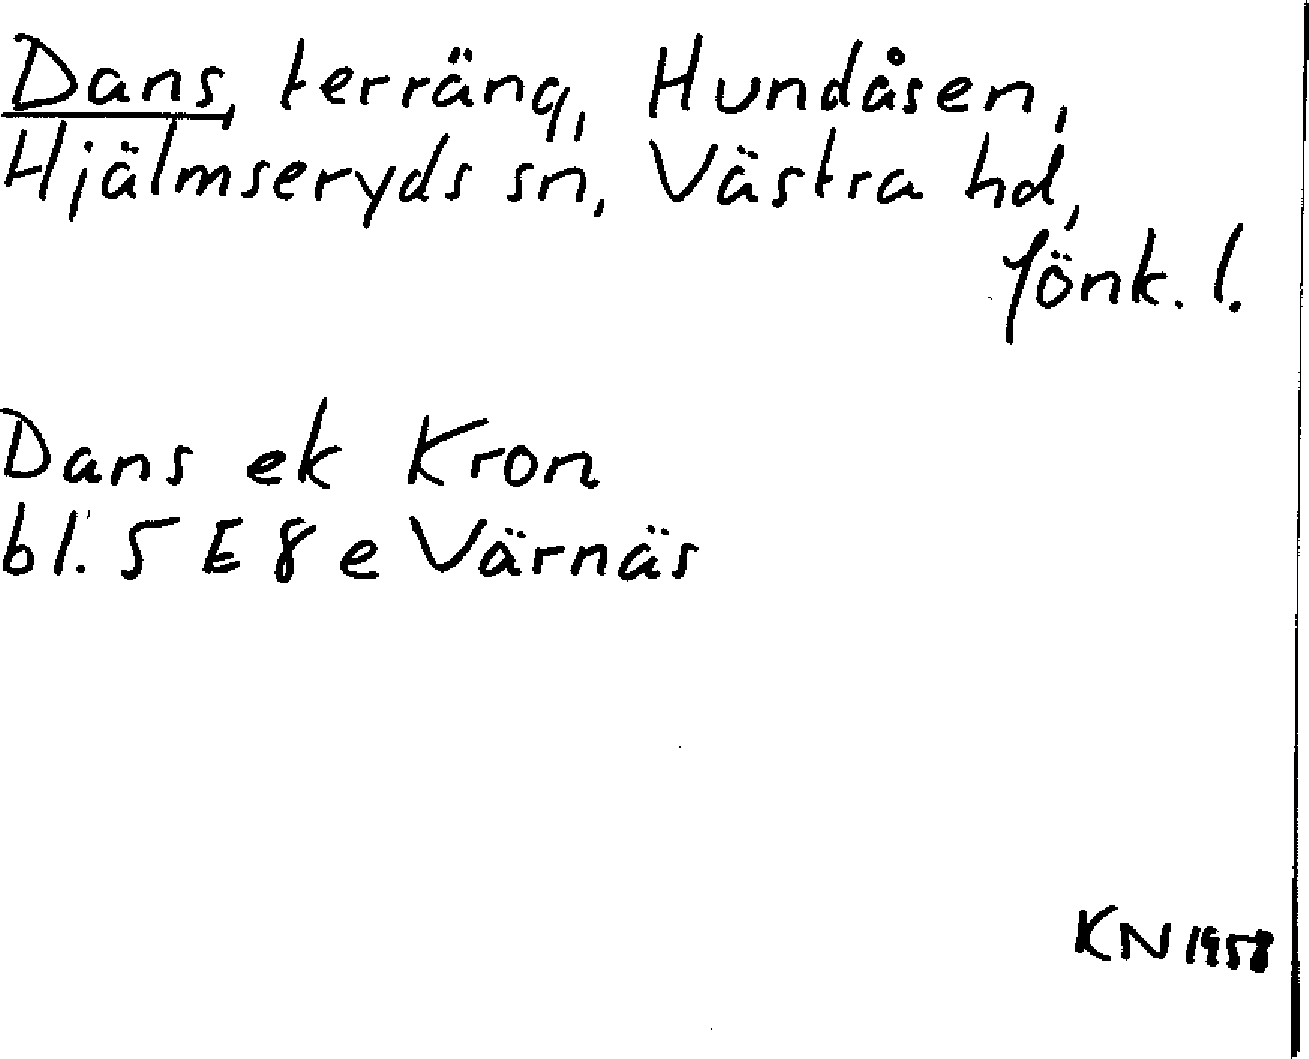 Dans, terräng, Hundåsen,
Hjälmseryds sn, Västra hd,
Jönk. l.
Dans ek Kron
bl. 5 E 8 e Värnäs
KN 1958